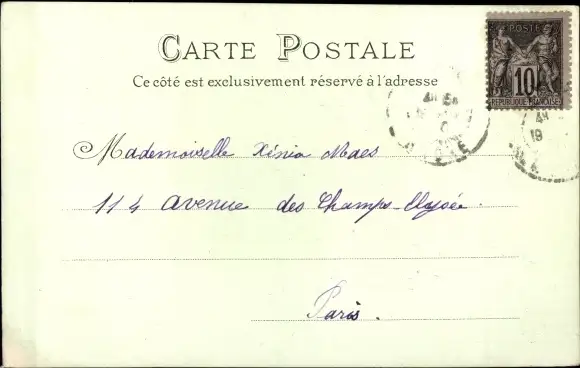 CARTE POSTALE
Ce côté est exclusivement réservé à l'adresse
POSTE
10
REPUBLIQUE FRANÇAISE
Mademoiselle Xénia Maes
114 avenue des Champs-Elysée.
Paris.